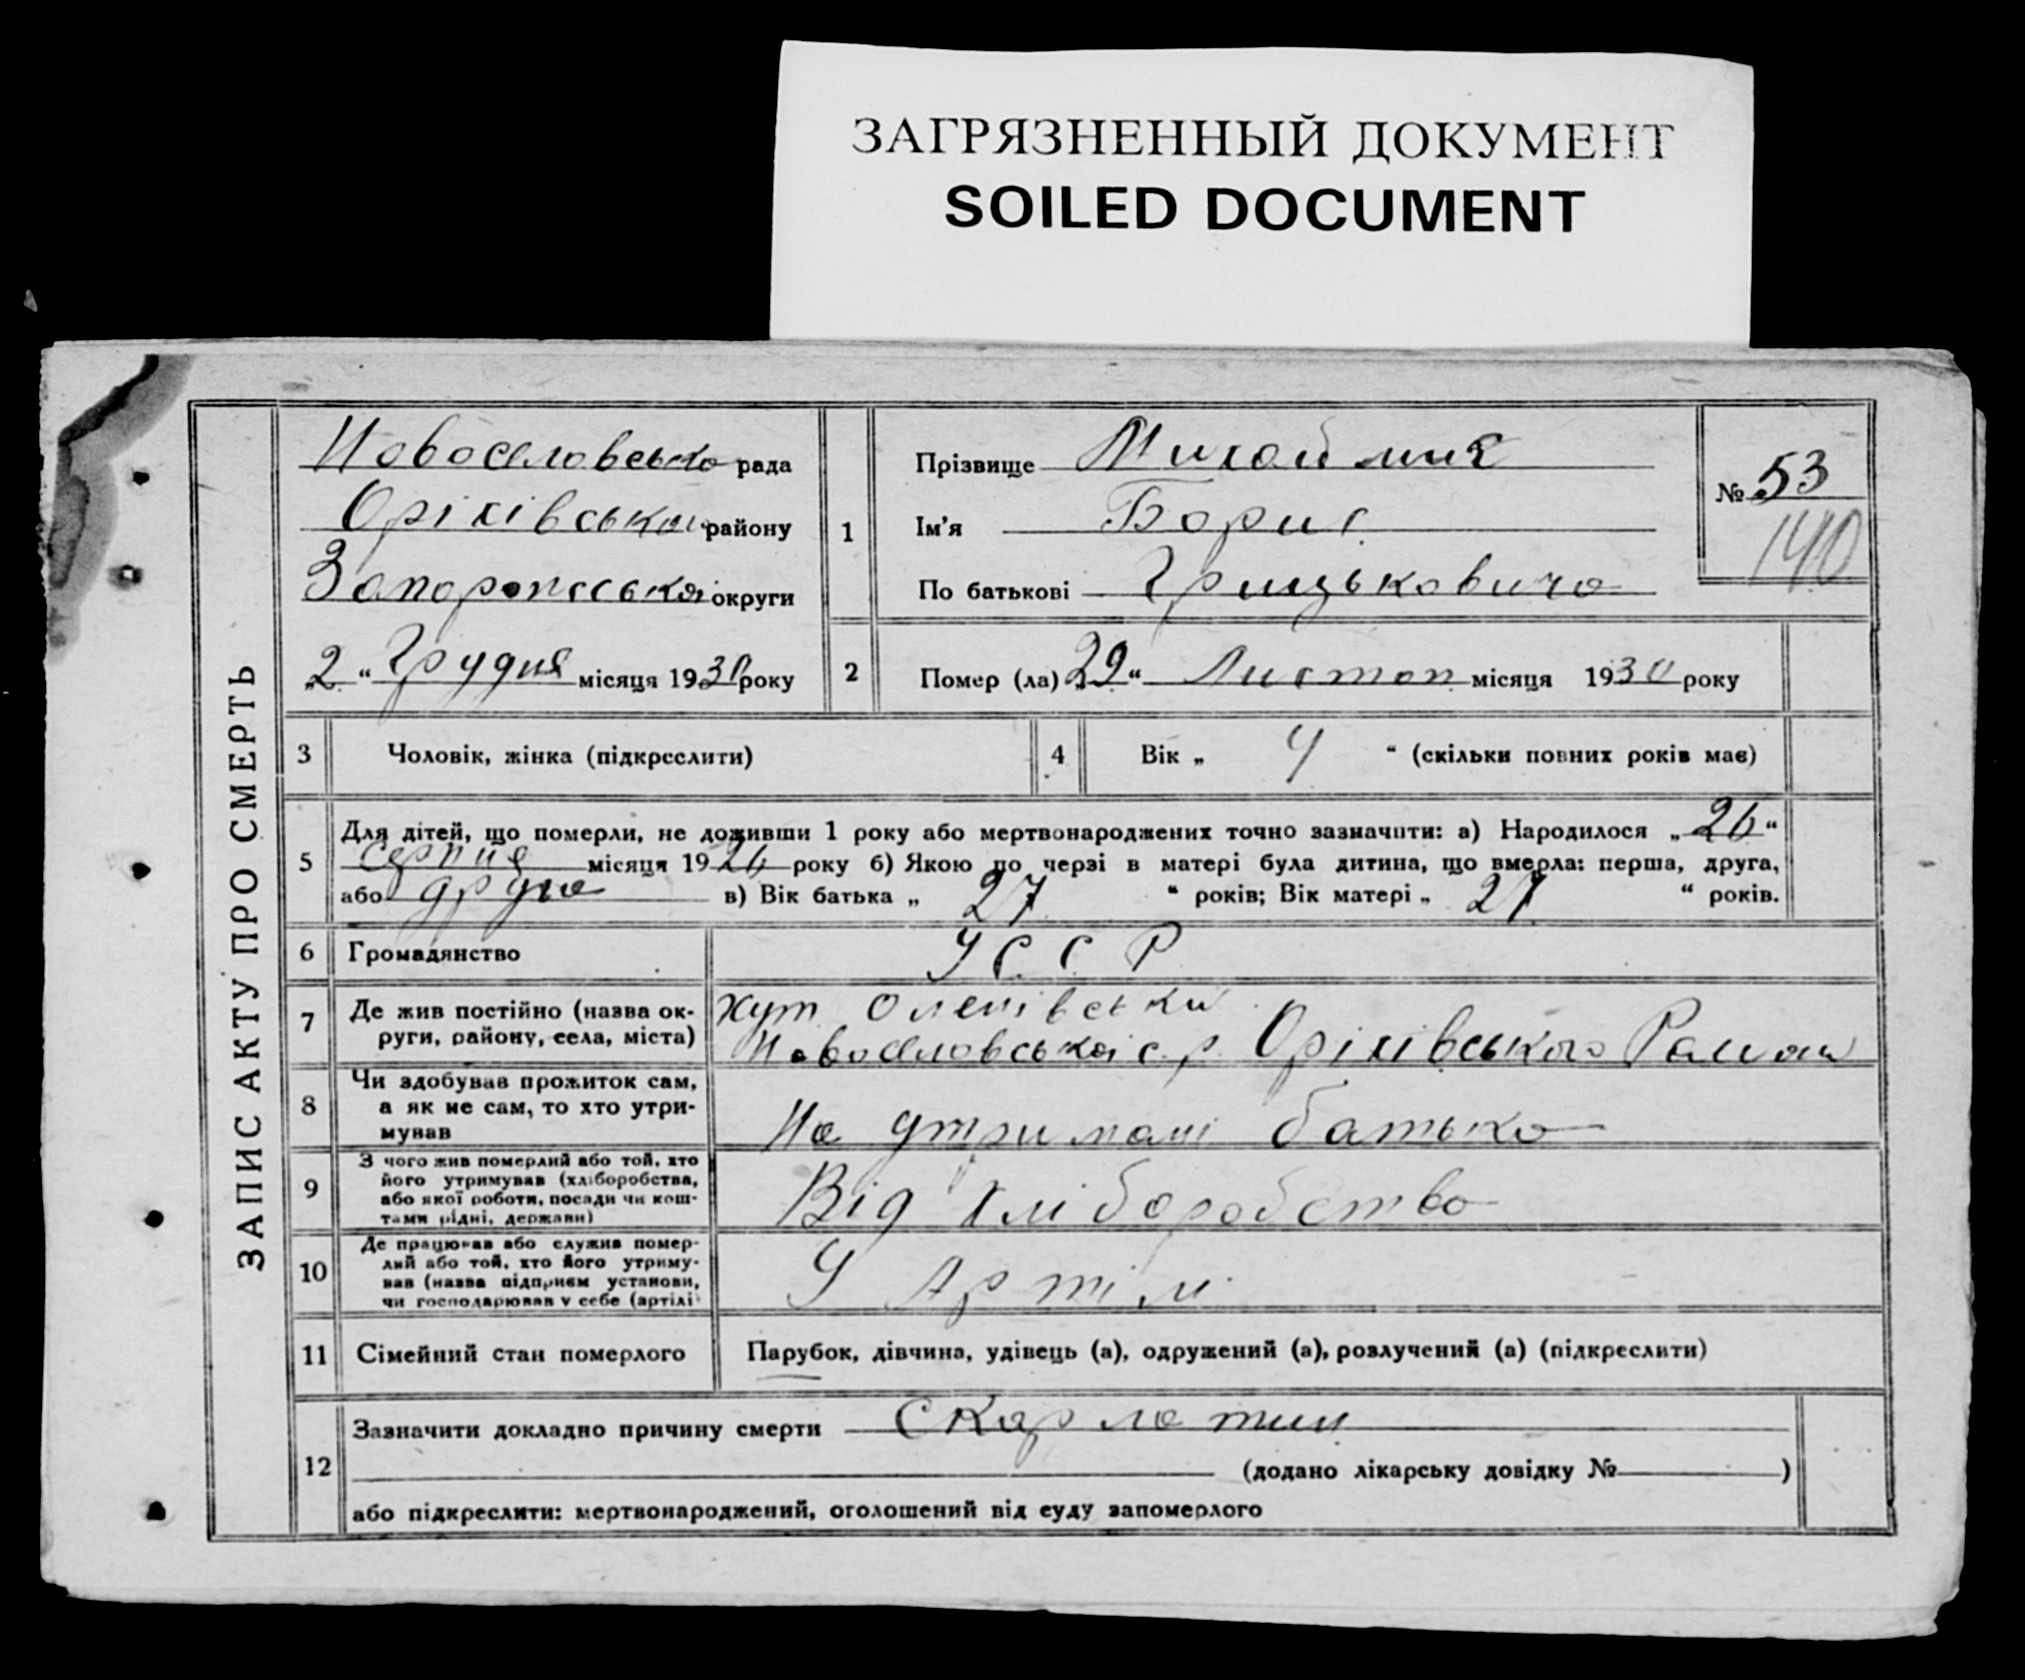 ЗАГРЯЗНЕННЫЙ ДОКУМЕНТ
SOILED DOCUMENT
ЗАПИС АКТУ ПРО СМЕРТЬ
Новоселовська рада
Оріхівського району
Запорожської округи
„2“ Грудня місяця 1930 року
1
Прізвище Михайлик
Ім'я Борис
По батькові Грицькович
№ 53
140
2
Помер (ла) 29“ Листоп місяця 1930 року
3 Чоловік, жінка (підкреслити)
4 Вік „ 4 “ (скільки повних років має)
5 Для дітей, що померли, не доживши 1 року або мертвонароджених точно зазначити: а) Народилося „26“
серпня місяця 1926 року б) Якою по черзі в матері була дитина, що вмерла: перша, друга,
або друга в) Вік батька „ 27 “ років; Вік матері „ 27 “ років.
6 Громадянство УССР
7 Де жив постійно (назва ок-
руги, району, села, міста)
Хут Оленівськи
Новоселовської с. р. Оріхівського Району
8 Чи здобував прожиток сам,
а як не сам, то хто утри-
мував
На утримані батька
9 З чого жив померлий або той, хто
його утримував (хліборобства,
або якої роботи, посади чи кош-
тами рідні, держави)
Від хліборобства
10 Де працював або служив помер-
лий або той, хто його утриму-
вав (назва підприєм установи,
чи господарював у себе (артілі
У Артіл
11 Сімейний стан померлого
Парубок, дівчина, удівець (а), одружений (а), розлучений (а) (підкреслити)
12 Зазначити докладно причину смерти Скарлатин
(додано лікарську довідку № )
або підкреслити: мертвонароджений, оголошений від суду запомерлого